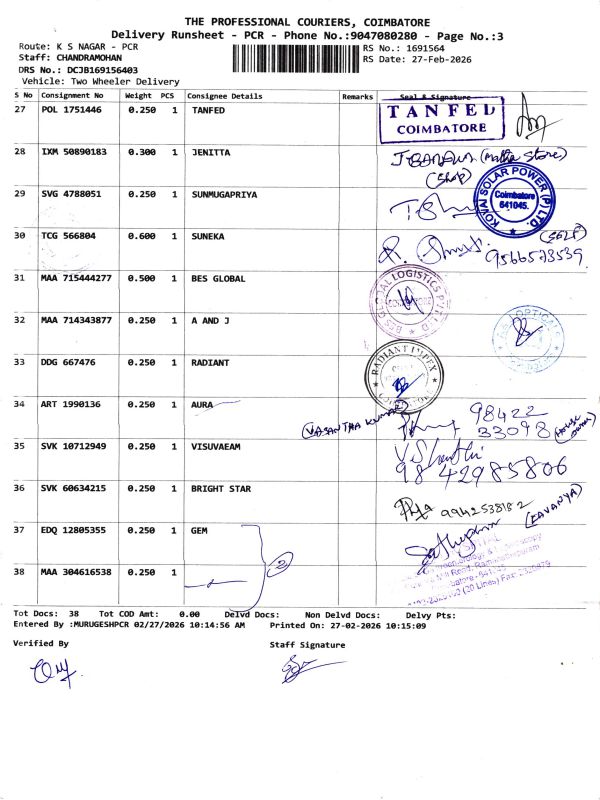 THE PROFESSIONAL COURIERS, COIMBATORE
Delivery Runsheet - PCR - Phone No.:9047080280 - Page No.:3
Route: K S NAGAR - PCR
RS No.: 1691564
Staff: CHANDRAMOHAN
RS Date: 27-Feb-2026
DRS No.: DCJB169156403
Vehicle: Two Wheeler Delivery
S No Consignment No Weight PCS Consignee Details Remarks Seal & Signature
27 POL 1751446 0.250 1 TANFED
TANFED
COIMBATORE
28 IXM 50890183 0.300 1 JENITTA
(Shop)
29 SVG 4788051 0.250 1 SUNMUGAPRIYA
KOVAN SOLAR POWER (P) LTD.
Coimbatore
641045.
30 TCG 566804 0.600 1 SUNEKA
(SELF)
9566573539
31 MAA 715444277 0.500 1 BES GLOBAL
BES GLOBAL LOGISTICS PVT LTD
32 MAA 714343877 0.250 1 A AND J
33 DDG 667476 0.250 1 RADIANT
RADIANT IMPEX
34 ART 1990136 0.250 1 AURA
98422
33098
(House owner)
35 SVK 10712949 0.250 1 VISUVAEAM
V. Shanthi
98 42985806
36 SVK 60634215 0.250 1 BRIGHT STAR
9942538182
(LAVANYA)
37 EDQ 12805355 0.250 1 GEM
2
38 MAA 304616538 0.250 1
Tot Docs: 38 Tot COD Amt: 0.00 Delvd Docs: Non Delvd Docs: Delvy Pts:
Entered By :MURUGESHPCR 02/27/2026 10:14:56 AM Printed On: 27-02-2026 10:15:09
Verified By Staff Signature